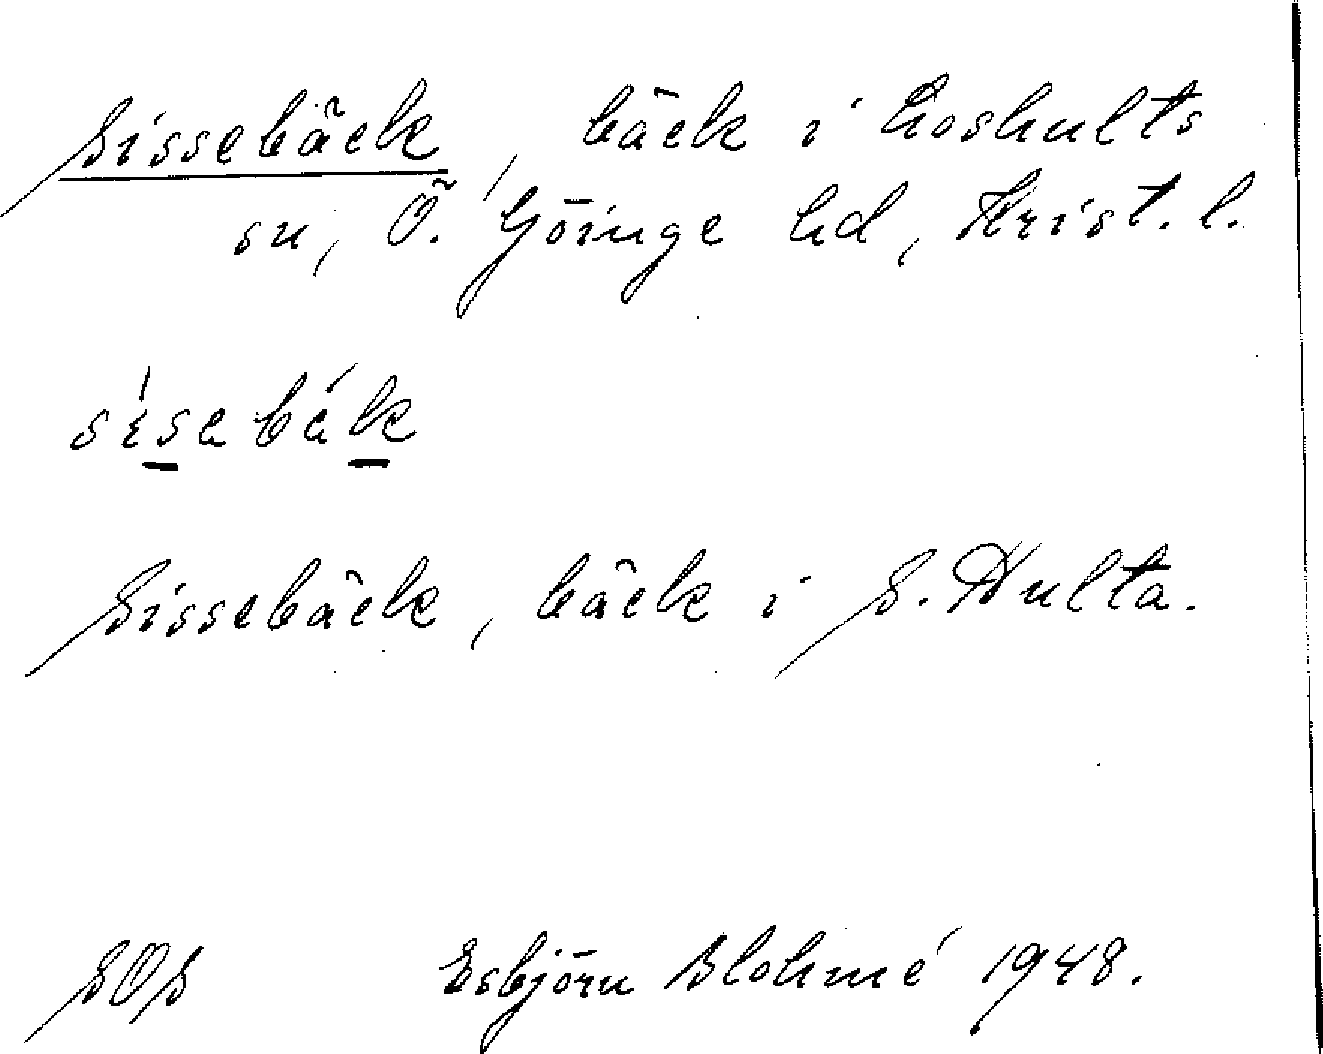 Sissebäck, bäck i Loshults
sn, Ö. Göinge hd, Krist. l.
sisabäk
Sissebäck, bäck i S. Hulta.
SOS Esbjörn Blohmé 1948.